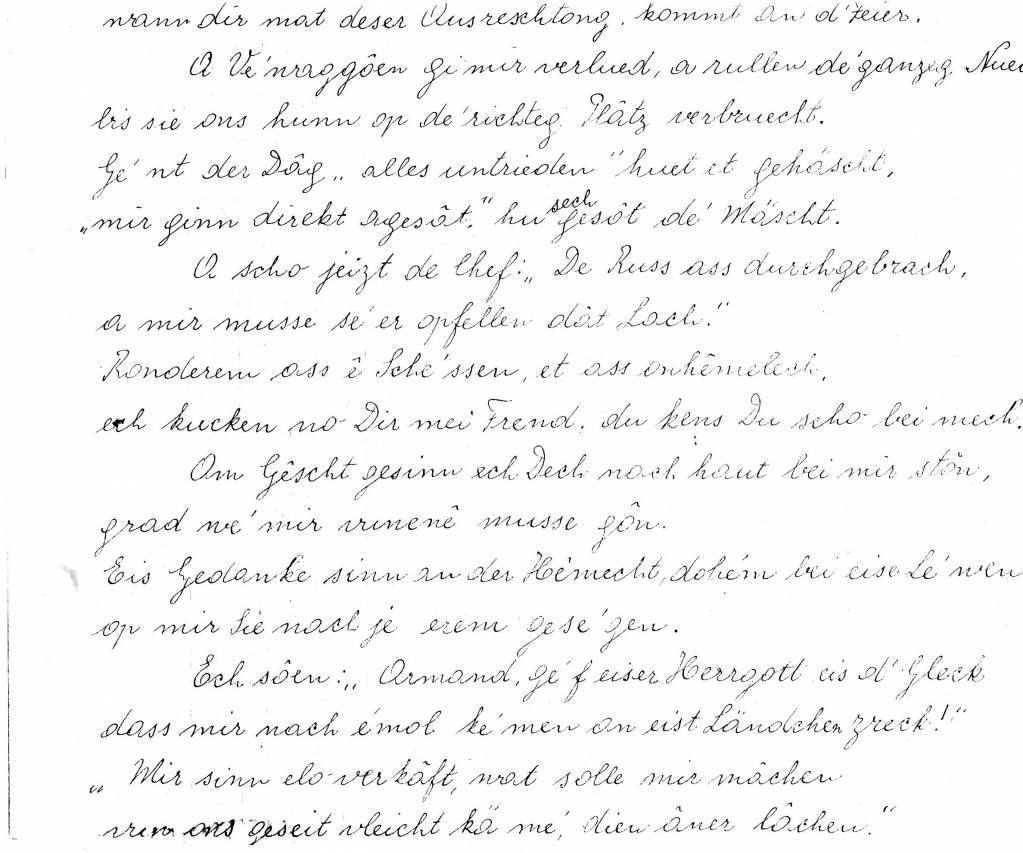 wann dir mat deser Ausreschtong, kommt an d'Feier.
A Vé'nraggôen gi mir verlued, a rullen dé ganzeg Nuet
bis sie ons hunn op dé richteg Plâtz verbruecht.
Gé'nt der Dâg „alles untrieden" huet et gehäscht,
„mir ginn direkt agesôt." hu sech gesôt dé Mäscht.
A scho jeizt de Chef: „De Russ ass durchgebrach,
a mir musse sé'er opfellen dât Lach."
Ronderem ass ê Sché'ssen, et ass onhêmelech,
ech kucken no Dir mei Frend, du kens Du scho bei mech.
Am Gêscht gesinn ech Dech nach haut bei mir stôn,
grad wé mir vunenê musse gôn.
Eis Gedanke sinn an der Hêmecht, dohém bei eise Lé'wen
op mir Sie nach je erem gesé'gen.
Ech sôen: „Armand, gé'f eiser Herrgott eis d'Gleck
dass mir nach émol ké'men an eist Ländchen zreck!"
„Mir sinn elo verkâft, wat solle mir mâchen
vun ons geseit vleicht kä mé, dien âner lâchen."